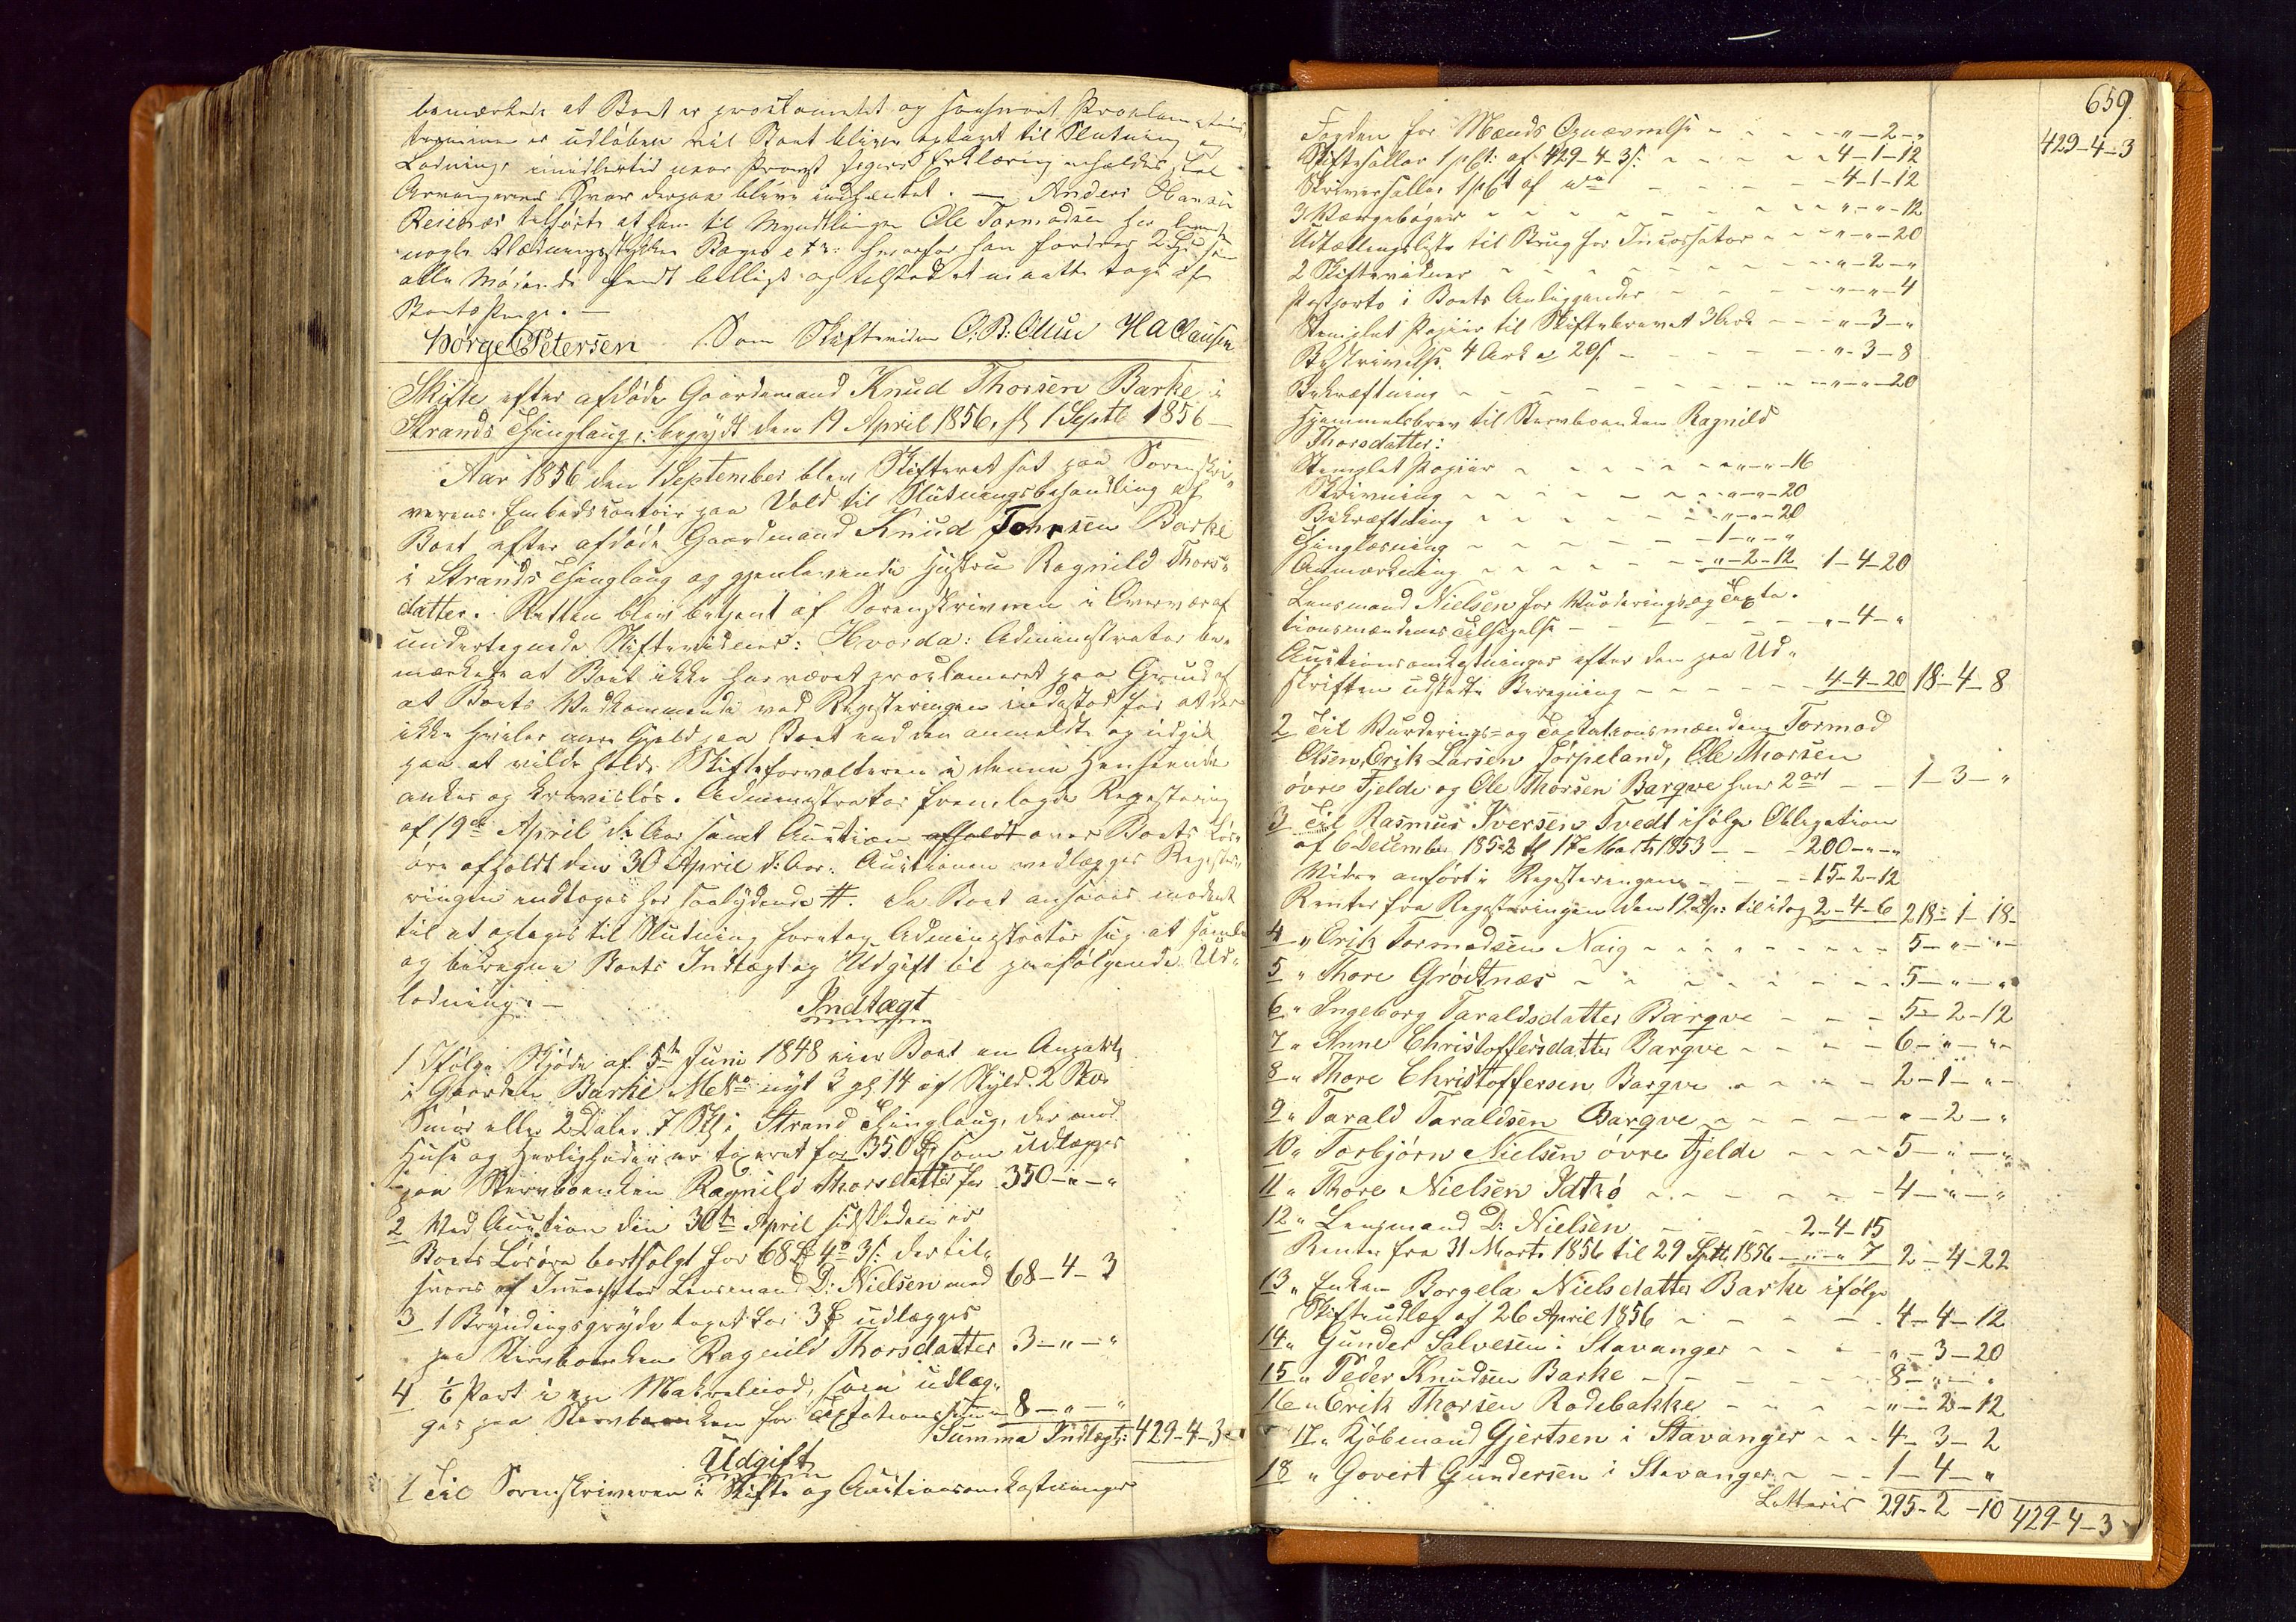 bemærkede at Boet er proklameret og saasnart Proklamations
terminen er udløben vil Boet blive optaget til Slutning og
Lodning, imidlertid naar Provst Erklæring erholdes skal
Arvingernes Svar derpaa blive indhæntet. — Anders Hansen
Reienæs tilførte at han til Myndlingen Ole Tormodsen har leveret
nogle Klædningsstykker Bøger etc: hvorfor han fordrer 2 som
alle Mødende fandt billigt og tilstod at maatte tages af
Boets Penge. —
Børge Petersen Som Skiftevidner O. B. H A Clausen
Skifte efter afdøde Gaardemand Knud Thorsen Barke i
Strands Thinglaug, begyndt den 19 April 1856, sl. 1 Septb 1856 —
Aar 1856 den 1 September blev Skifteret sat paa Sorenskri-
verens Embedscontoir paa Vold til Slutningsbehandling af
Boet efter afdøde Gaardmand Knud Tohrsen Barke
i Strands Thinglaug og gjenlevende Hustru Ragnild Thors-
datter. Retten blev betjent af Sorenskriveren i Overvær af
undertegnede Skiftevidner: Hvorda: Administrator be-
mærkede at Boet ikke har været proclameret paa Grund af
at Boets Vedkommende ved Registeringen indestod for at der
ikke hviler mere Gjeld paa Boet end den anmeldte og udgik
paa at vilde holde Skifteforvalteren i denne Henseende
ankes og kravesløs. Administrator fremlagde Registering
af 19de April d: Aar samt Auction afholdt over Boets Løs-
øre afholdt den 30 April d: Aar. Auctionen vedlægges Registe-
ringen indtages her saalydende #. Da Boet ansaaes modent
til at optages til Slutning foretog Administrator sig at samle
og beregne Boets Indtægt og Udgift til paafølgende Ud-
lodning. —
Indtægt
1 Ifølge Skjøde af 5te Juni 1848 eier Boet en Anpart
i Gaarden Barke Mtr No nyt 3 gl 14 af Skyld 2 Spd
Smør eller 2 Daler 7 Sk i Strand Thinglaug, der med
Huse og Herligheder er taxeret for 350 Spd som udlægges
paa Stervboenken Ragnild Thorsdatter for 350 - " - "
2 Ved Auction den 30te April sidstleden er
Boets Løsøre bortsolgt for 68 Spd 4 o 3 s. der til-
svares af Incassator Lensmand D: Nielsen med 68 - 4 - 3
3 1 Bryndingsgryde taxet for 3 Spd udlægges
paa Stervboenken Ragnild Thorsdatter 3 - " - "
4 1/6 Part i en Makrelnod, som udlæg-
ges paa Stervboenken for Taxtationssummen 8 - " - "
Summa Indtægt: 429 - 4 - 3
Udgift
1 Til Sorenskriveren i Skifte og Auctionsomkostninger
659
429-4-3
Fogden for Mænds Opnævnelse " - 2 - "
Skiftesallar 1 pCt: af 429-4-3 s: 4-1-12
Skriversallar 1 pCt af do 4-1-12
3 Værgebøger " - " - 12
Udtællingsliste til Brug for Incassator " - " - 20
2 Skiftevidner " - 2 - "
Postporto i Boets Anliggender " - " - 4
Stemplet Papiir til Skiftebrevet 3 Ark " - 3 - "
Beskrivelse 4 Ark a 20 s. " - 3 - 8
Bekræftning " - " - 20
Hjemmelsbrev til Stervboenken Ragnild
Thorsdatter:
Stemplet Papiir " - " - 16
Skrivning " - " - 20
Bekræftning " - " - 20
Thinglæsning 1 - " - "
Anmærkning " - 2 - 12 1-4-20
Lensmand Nielsen for Vurderings og Taxta-
tionsmændenes Tilsigelse " - 4 - "
Auctionsomkostninger efter den paa Ud-
skriften udstedte Beregning 4-4-20 18-4-8
2 Til Vurderings- og Taxtationsmændene Tormod
Olsen, Erik Larsen Jørpeland, Ole Thorsen
øvre Fjelde og Ole Thorsen Barqve hver 2 ort 1 - 3 - "
3 Til Rasmus Iversen Tvedt ifølge Obligation
af 6 December 1852 tl 17 Marts 1853 200 - " - "
Videre anført i Registeringen 15-2-12
Renter fra Registeringen den 19 Ap: til idag 2-4-6 218-1-18
4 " Erik Tormodsen Naig 5 - " - "
5 " Thore Grødtnæs 5 - " - "
6 " Ingeborg Taraldsdatter Barqve 5-2-12
7 " Anne Christoffersdatter Barqve 6 - " - "
8 " Thore Christoffersen Barqve 2 - 1 - "
9 " Tarald Taraldsen Barqve " - 2 - "
10 " Torbjørn Nielsen øvre Fjelde 5 - " - "
11 " Thore Nielsen Idtsø 4 - " - "
12 " Lensmand D: Nielsen 2-4-15
Renter fra 31 Marts 1856 til 29 Septb 1856 " - " 7 2-4-22
13 " Enken Borgela Nielsdatter Barke ifølge
Skifteudlæg af 26 April 1856 4-4-12
14 " Gunder Salvesen i Stavanger " - 3 - 20
15 " Peder Knudsen Barke 8 - " - "
16 " Erik Thorsen Rodebakke " - 2 - 12
17 " Kjøbmand Gjertsen i Stavanger 4 - 3 - 2
18 " Govert Gundersen i Stavanger 1 - 4 - "
Latteris 295-2-10 429-4-3